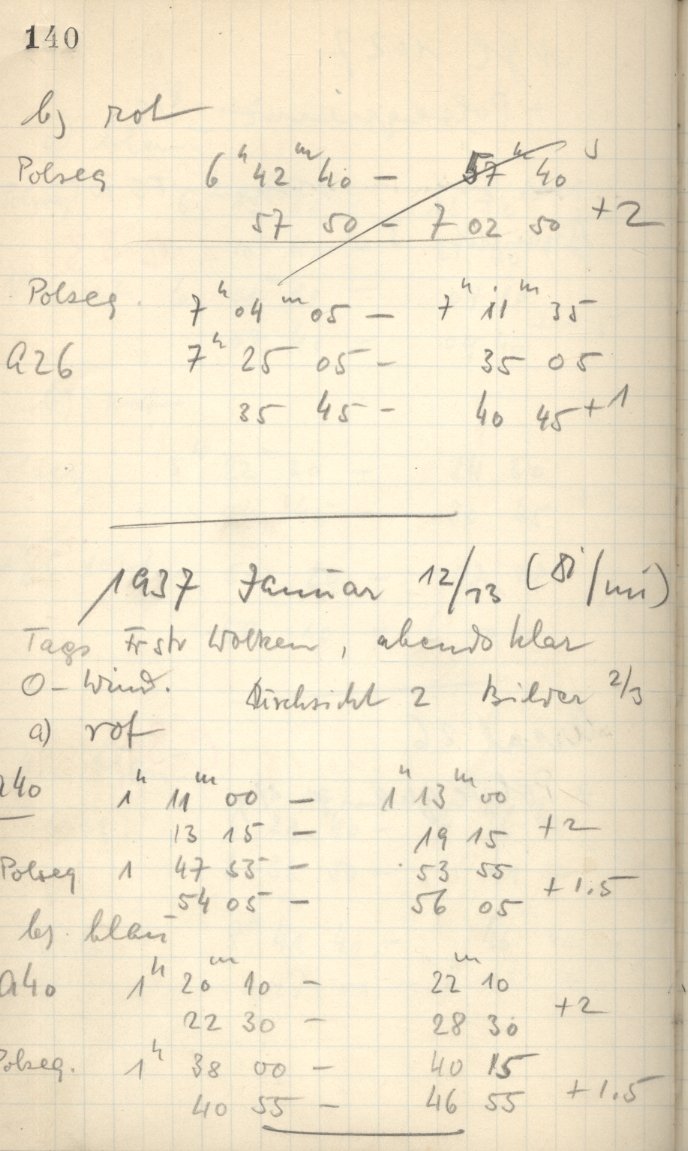 140
b) rot
Polseq 6h 42m 40 — 57m 40s
57 50 — 7 02 50 +2
Polseq. 7h 04m 05 — 7h 11m 35
A26 7h 25 05 — 35 05
35 45 — 40 45 +1
1937 Januar 12/13 (Di/Mi)
Tags Fr str Wolken, abends klar
O-Wind. Durchsicht 2 Bilder 2/3
a) rot
A40 1h 11m 00 — 1h 13m 00
13 15 — 19 15 +2
Polseq 1 47 55 — 53 55
54 05 — 56 05 +1.5
b) blau
A40 1h 20m 10 — 22m 10
22 30 — 28 30 +2
Polseq. 1h 38 00 — 40 15
40 55 — 46 55 +1.5